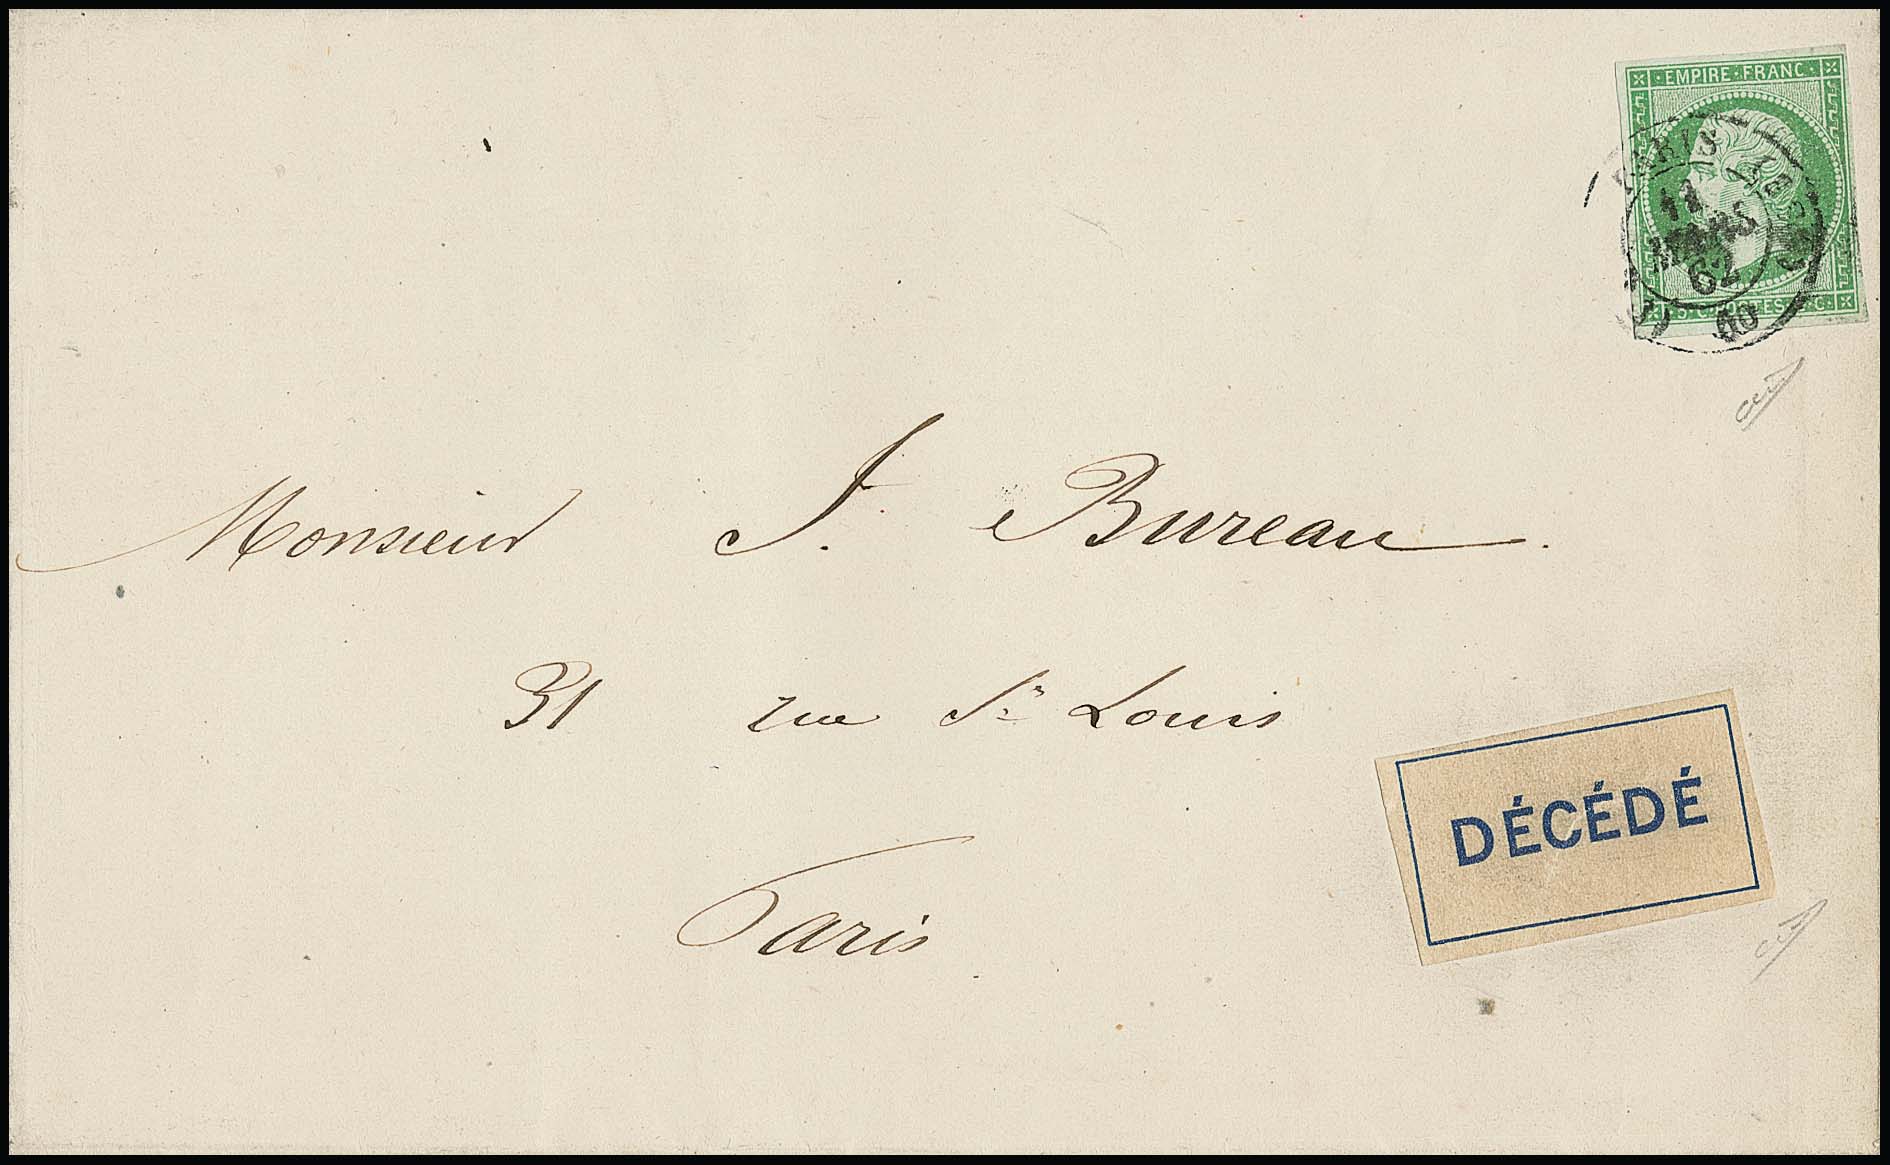 EMPIRE FRANC
PARIS
MARS
62
60
Monsieur J. Bureau.
31 rue St Louis
DÉCÉDÉ
Paris